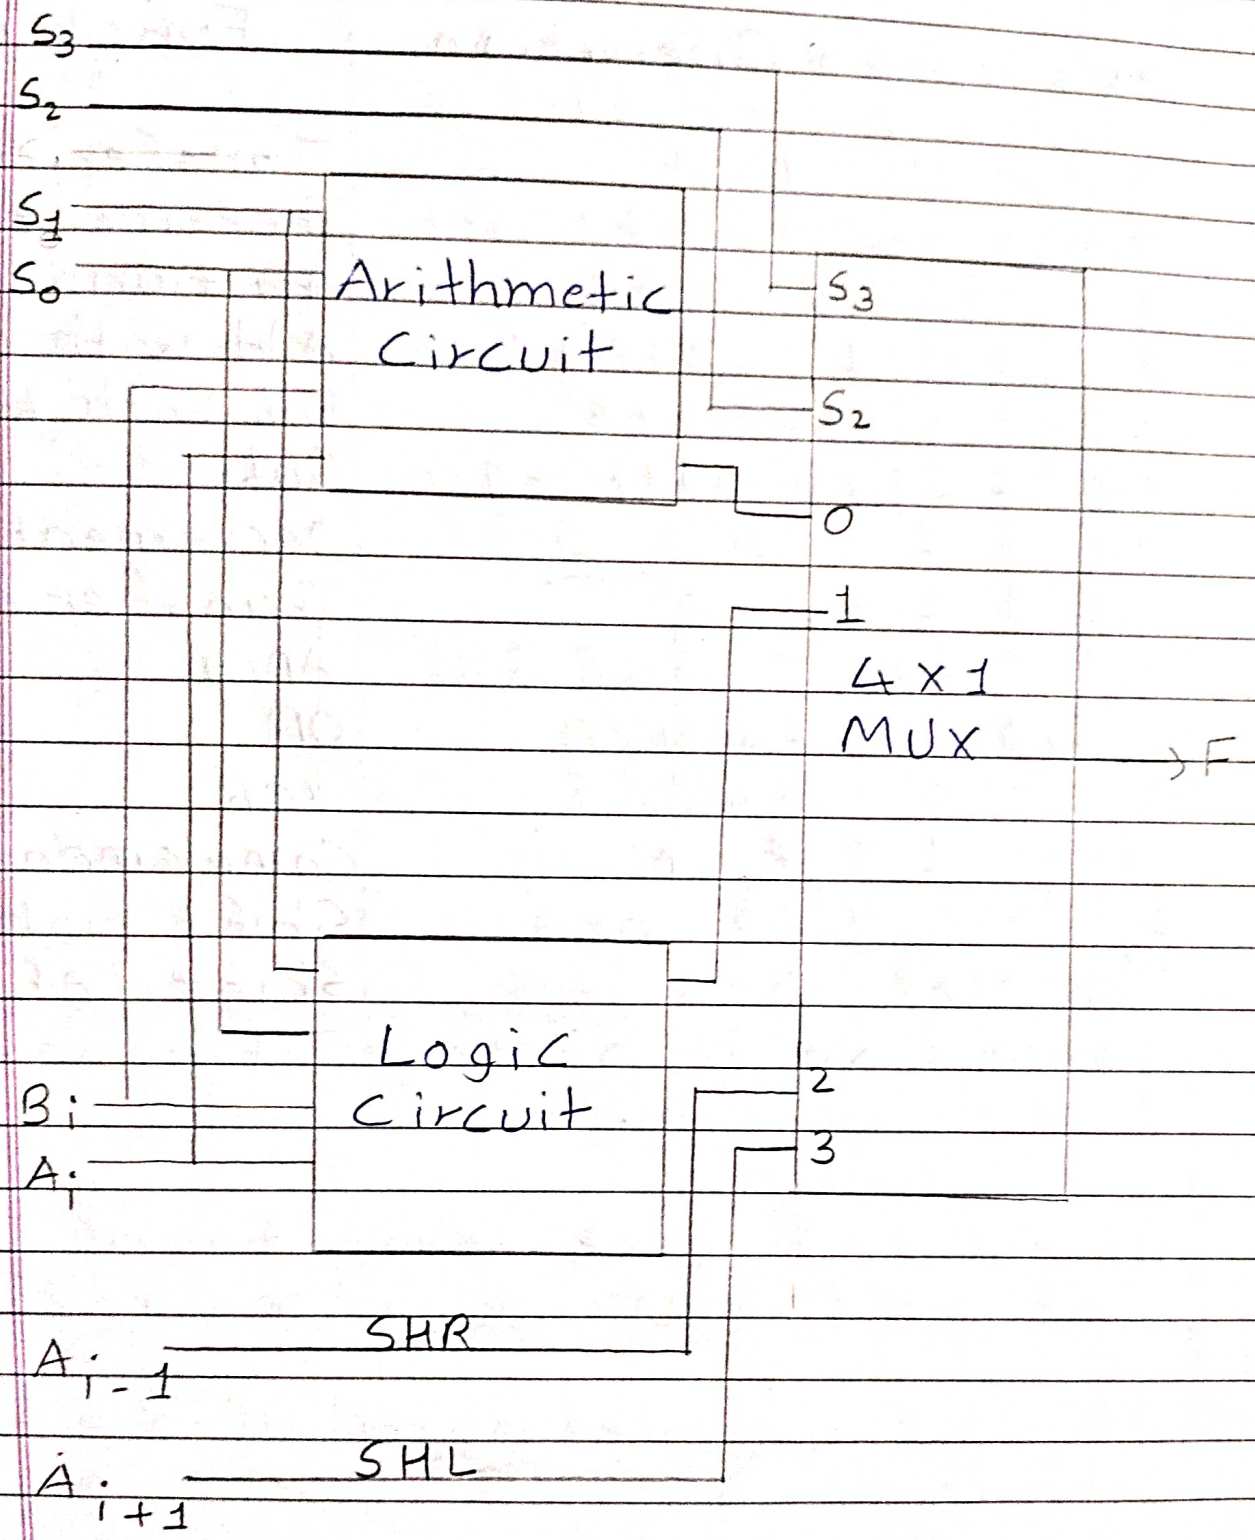 S3
S2
S1
S0
Arithmetic
Circuit
S3
S2
0
1
4 x 1
MUX
F
Logic
Circuit
Bi
Ai
2
3
SHR
Ai-1
SHL
Ai+1